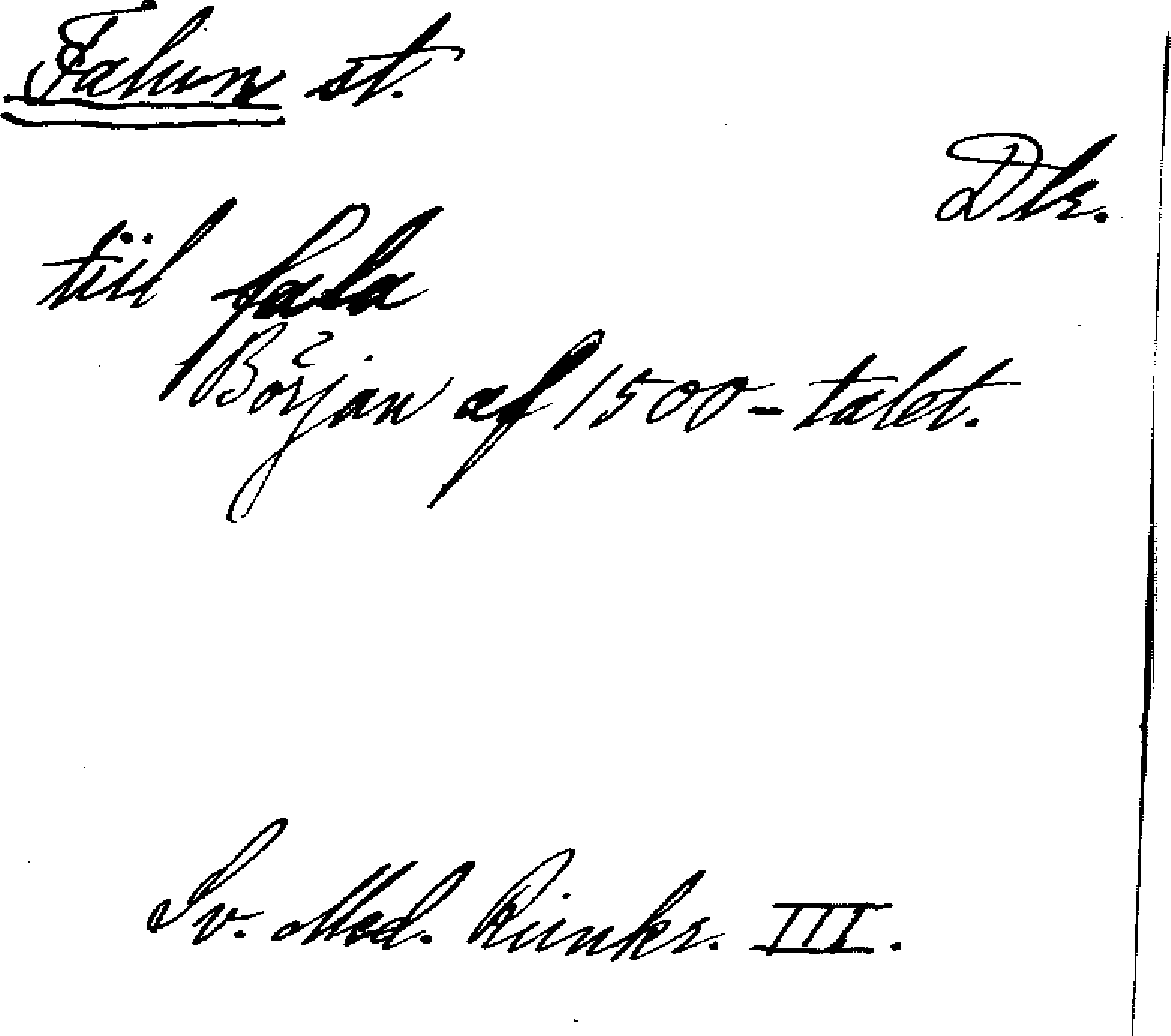 Falun st.
Dlr.
tiil fala
Början af 1500-talet.
Sv. Med. Rimkr. III.